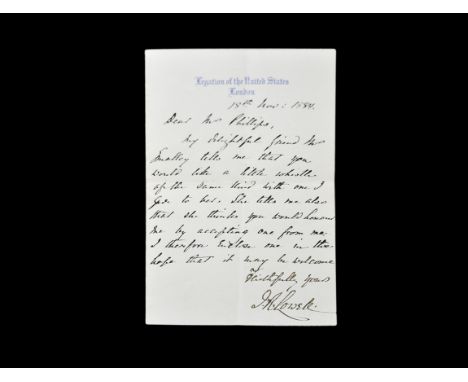 Legation of the United States
London
18th Nov: 1884.
Dear Mrs Phillips,
My delightful friend Mrs
Smalley tells me that you
would like a little whistle
of the same kind with one I
gave to her. She tells me also
that she thinks you would honour
me by accepting one from me.
I therefore enclose one in the
hope that it may be welcome
Faithfully yours
J. R. Lowell.